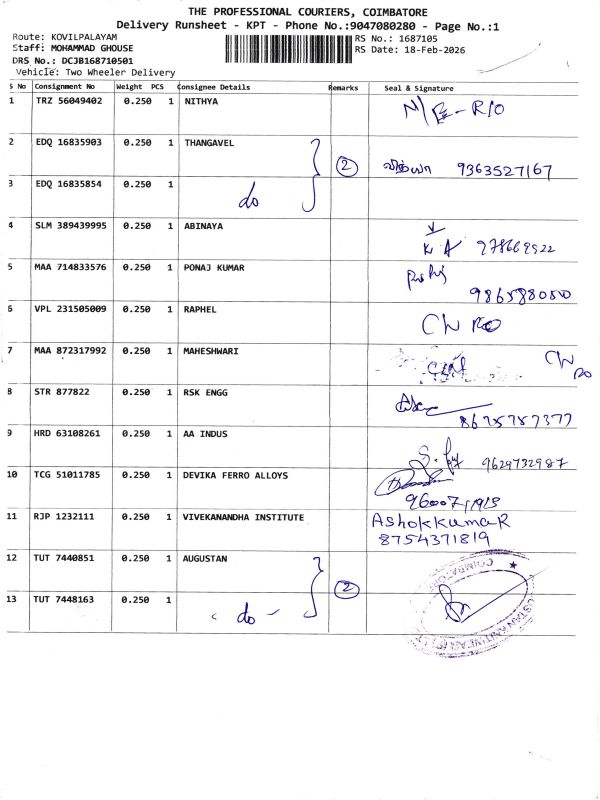 THE PROFESSIONAL COURIERS, COIMBATORE
Delivery Runsheet - KPT - Phone No.:9047080280 - Page No.:1
Route: KOVILPALAYAM
RS No.: 1687105
Staff: MOHAMMAD GHOUSE
RS Date: 18-Feb-2026
DRS No.: DCJB168710501
Vehicle: Two Wheeler Delivery
S No Consignment No Weight PCS Consignee Details Remarks Seal & Signature
1 TRZ 56049402 0.250 1 NITHYA
2 EDQ 16835903 0.250 1 THANGAVEL 2 வித்யா 9363527167
3 EDQ 16835854 0.250 1 do
4 SLM 389439995 0.250 1 ABINAYA
5 MAA 714833576 0.250 1 PONAJ KUMAR
6 VPL 231505009 0.250 1 RAPHEL
7 MAA 872317992 0.250 1 MAHESHWARI
8 STR 877822 0.250 1 RSK ENGG
9 HRD 63108261 0.250 1 AA INDUS 9629732987
10 TCG 51011785 0.250 1 DEVIKA FERRO ALLOYS
11 RJP 1232111 0.250 1 VIVEKANANDHA INSTITUTE AshokkumaR
8754371819
12 TUT 7440851 0.250 1 AUGUSTAN 2 COIMBATORE
13 TUT 7448163 0.250 1 - do -